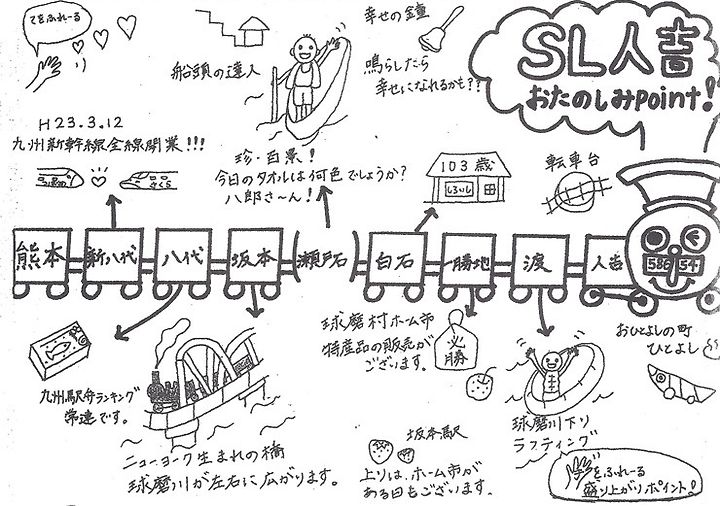 てをふれーる
船頭の達人
幸せの鐘
鳴らしたら
幸せになれるかも??
SL人吉
おたのしみpoint!
H23.3.12
九州新幹線全線開業!!!
珍・百景!
今日のタオルは何色でしょうか?
八郎さ〜ん!
103歳
しらいし
転車台
熊本
新八代
八代
坂本
(瀬戸石)
白石
一勝地
渡
人吉
586 54
九州駅弁ランキング
常連です。
ニューヨーク生まれの橋
球磨川が左右に広がります。
球磨村ホーム市
特産品の販売が
ございます。
必勝
坂本駅
上りは、ホーム市が
ある日もございます。
球磨川下り
ラフティング
おひとよしの町
ひとよし
をふれーる
盛り上がりポイント!